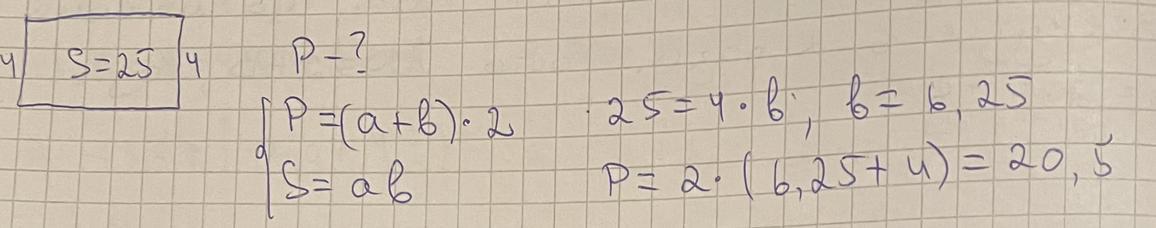 4 S=25 4
P-?
P=(a+b)·2
S=ab
25=4·b; b=6,25
P=2·(6,25+4)=20,5